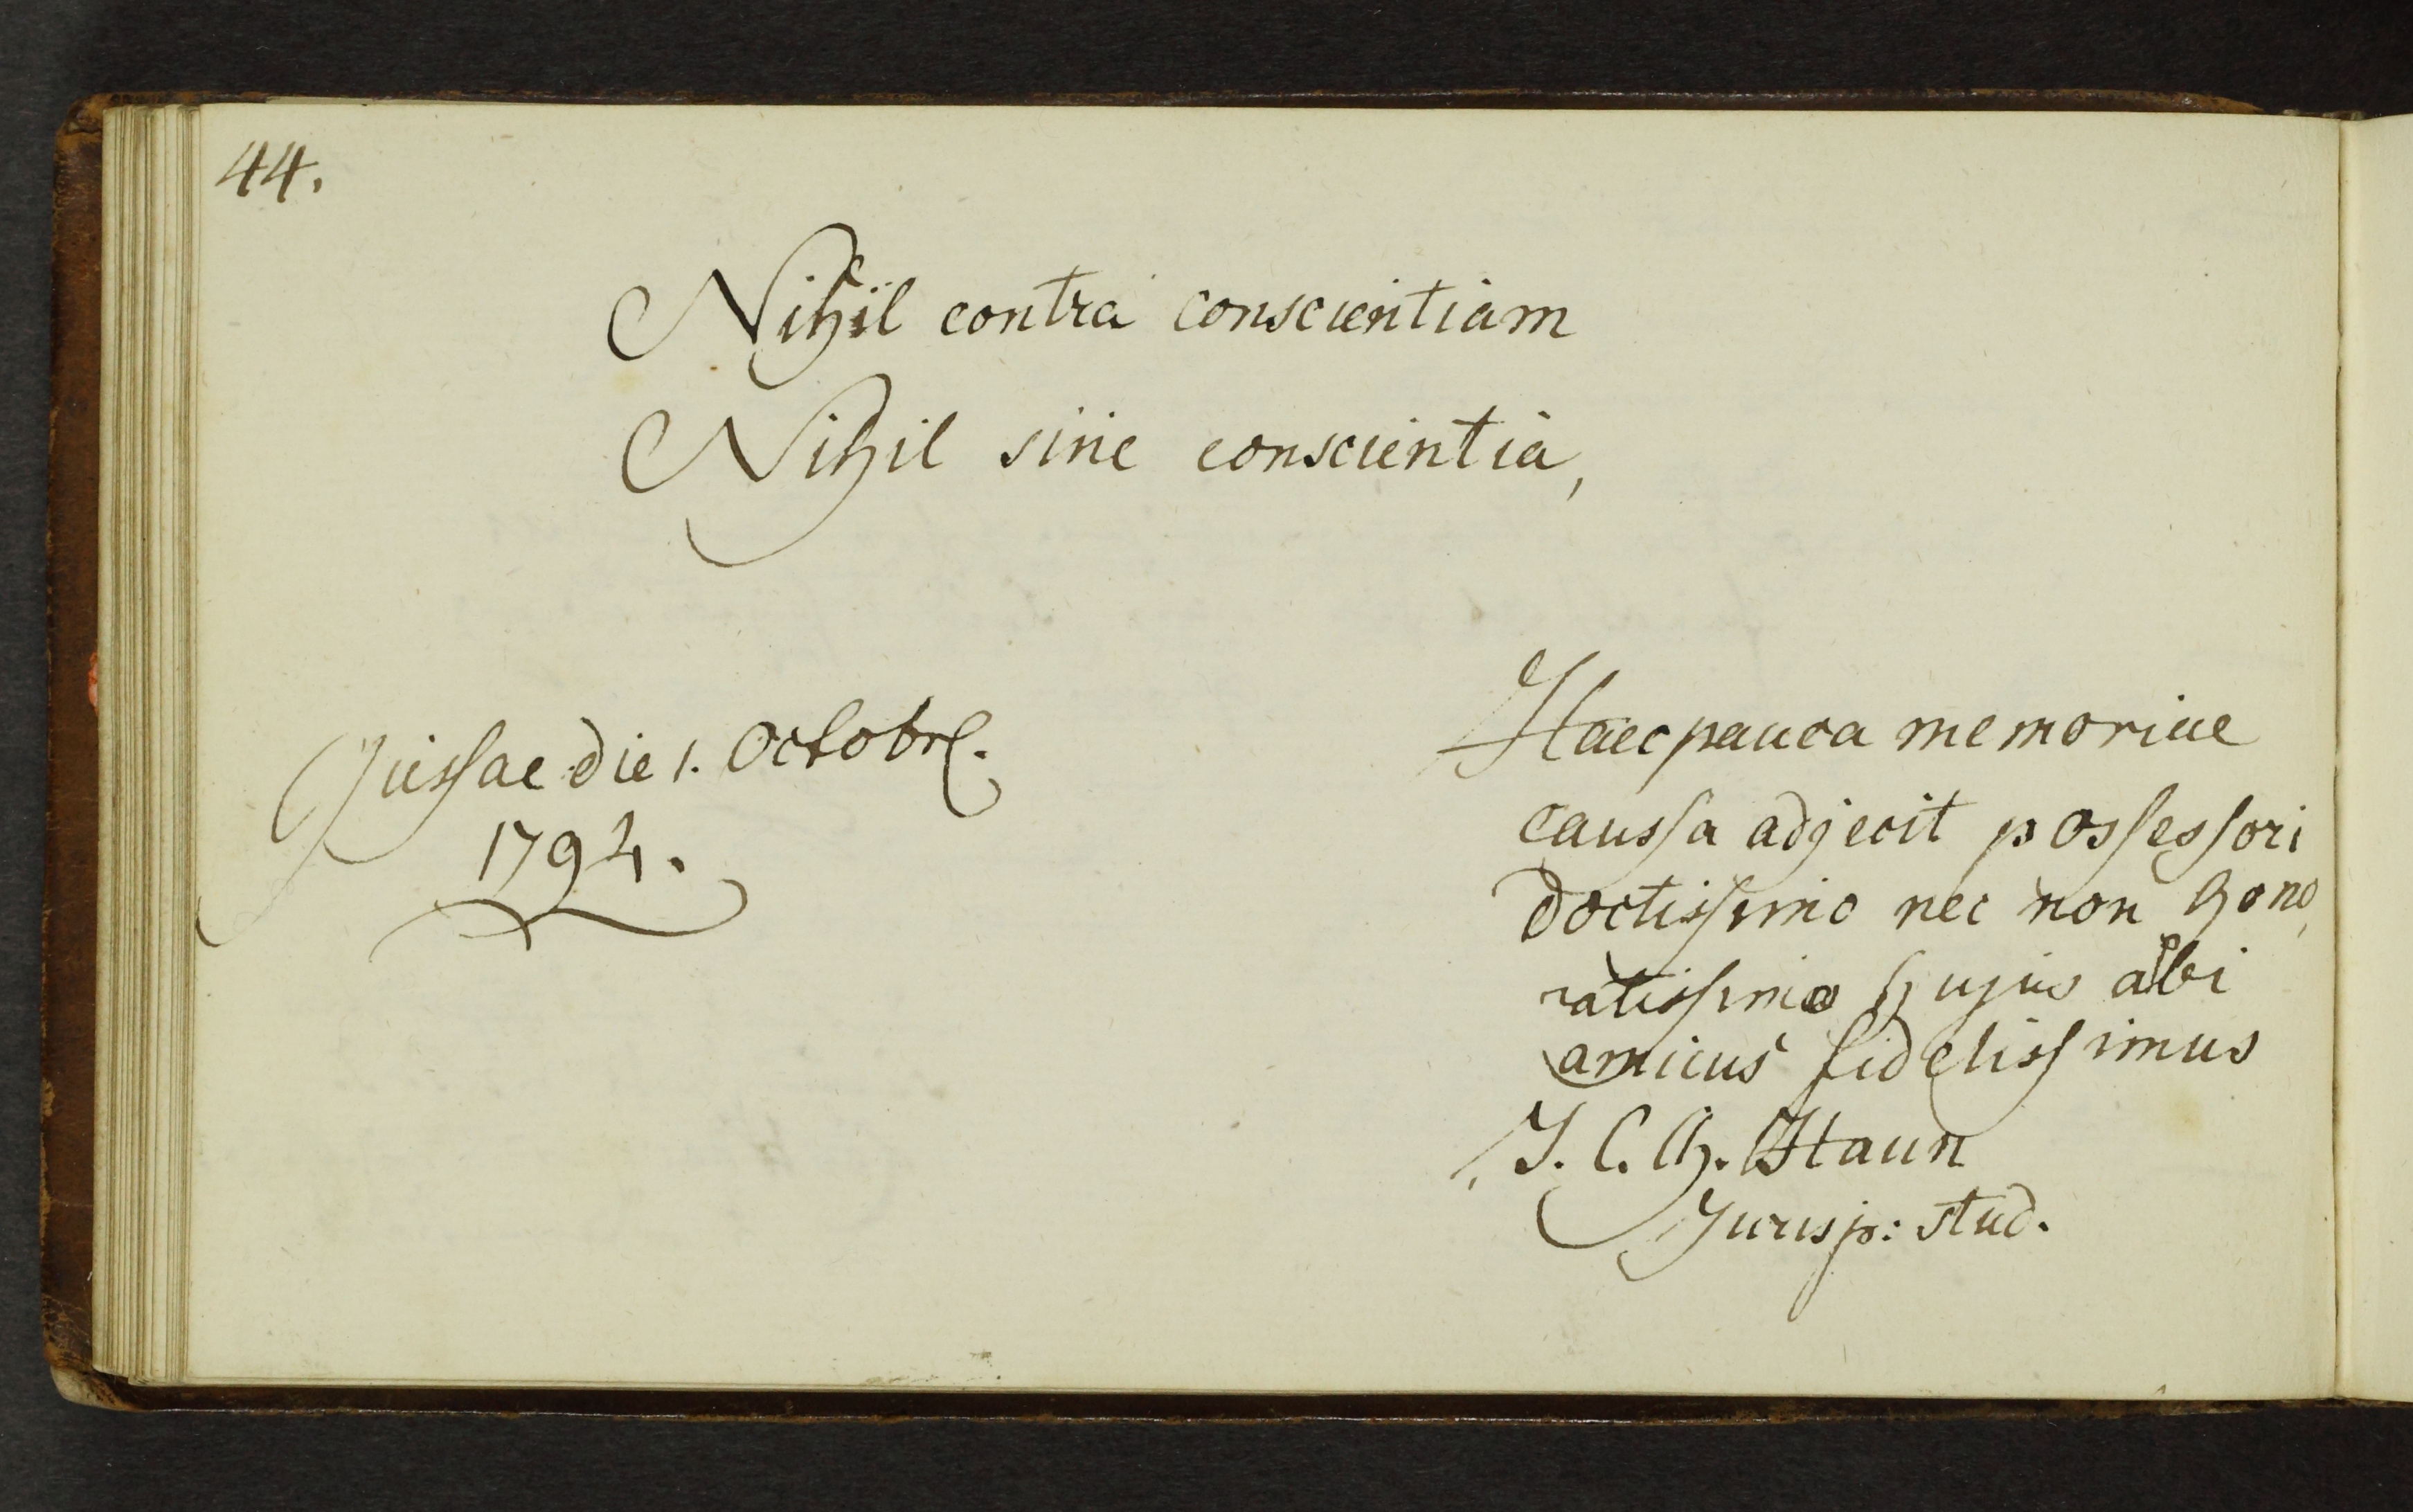 44.
Nihil contra conscientiam
Nihil sine conscientia,
Jussae die 1. Octobr.
1794.
Haec pauca memoriae
caussa adjecit possessori
doctissimo nec non hono,
ratissimo hujus albi
amicus fidelissimus
J. C. Ch. Haun
Jurisp: stud.